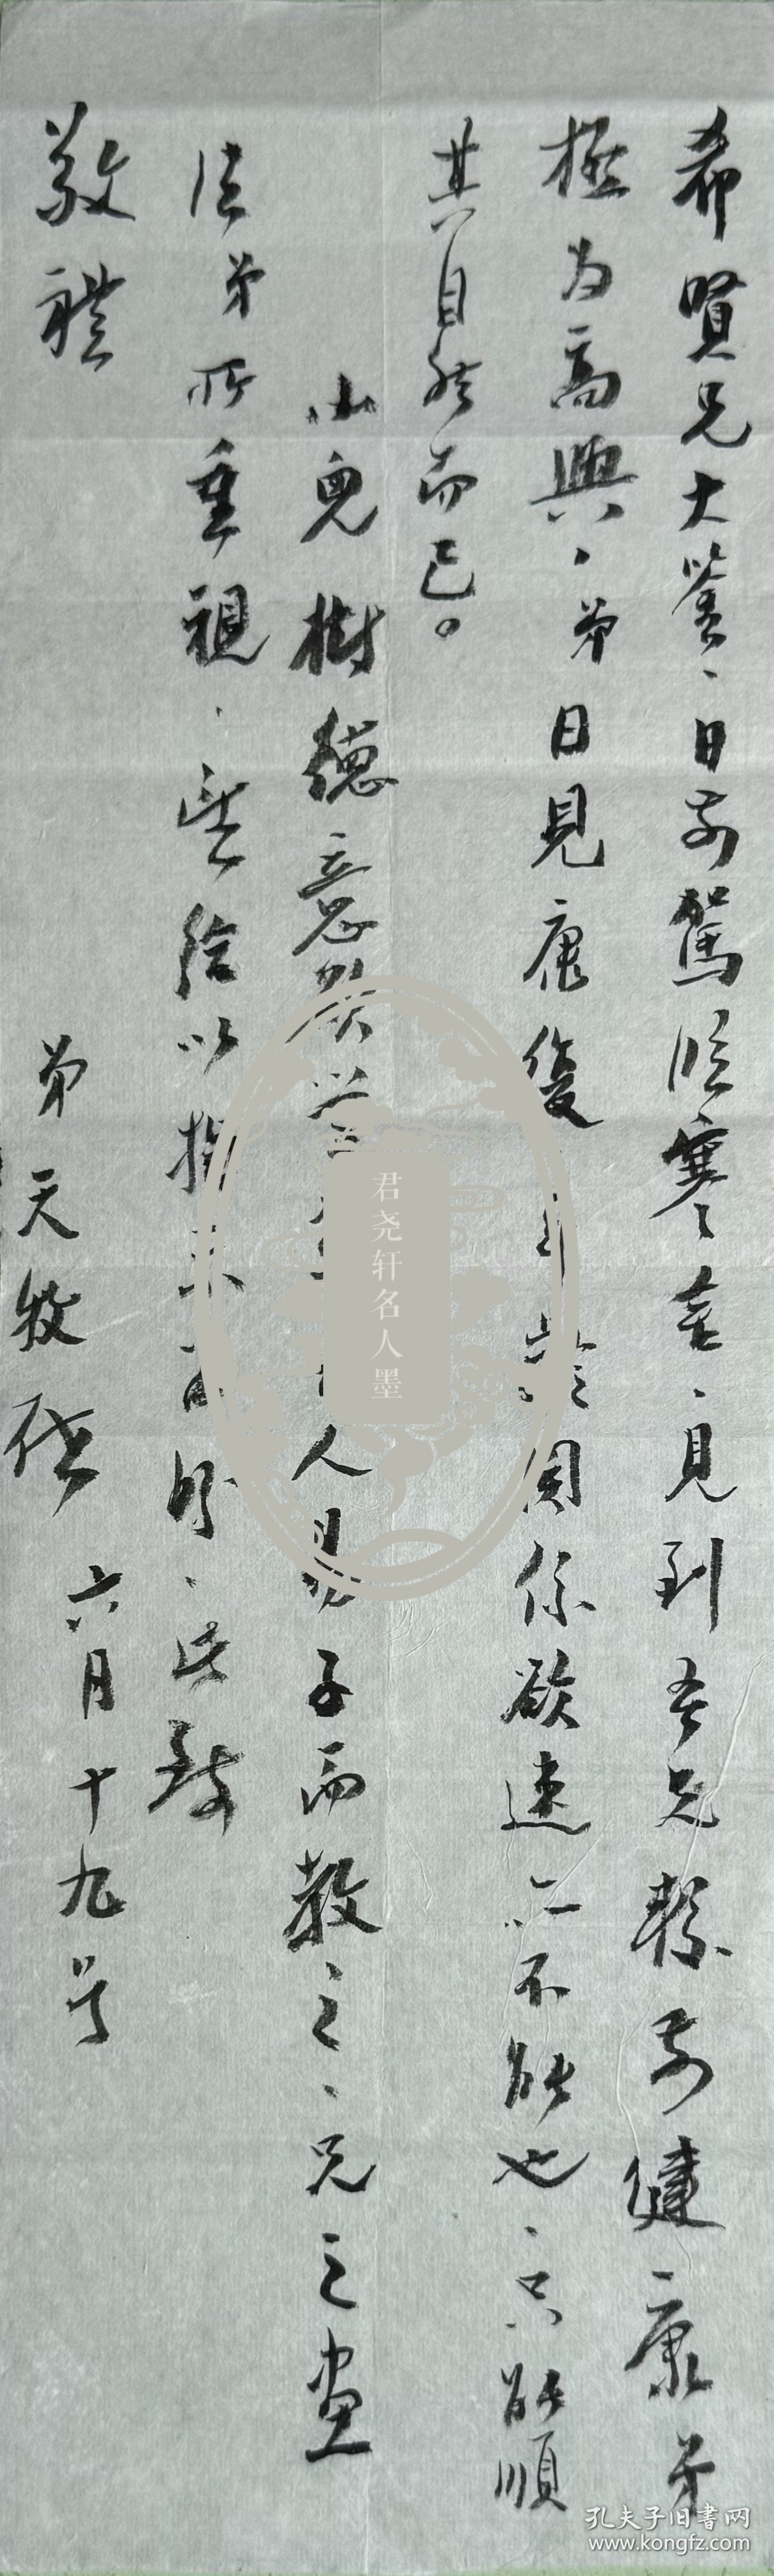 希賢兄大鉴、日前駕临寒舍、見到吾兄較前健康弟
極为高興、弟日見康復、年龄関係欲速亦不能也、只能順
其自然而已。
小兒樹德意欲学人易子而教之、兄之画
法弟所重視、望给以指、此致
敬禮
弟天牧啓
六月十九号
君尧轩名人墨
孔夫子旧书网
www.kongfz.com